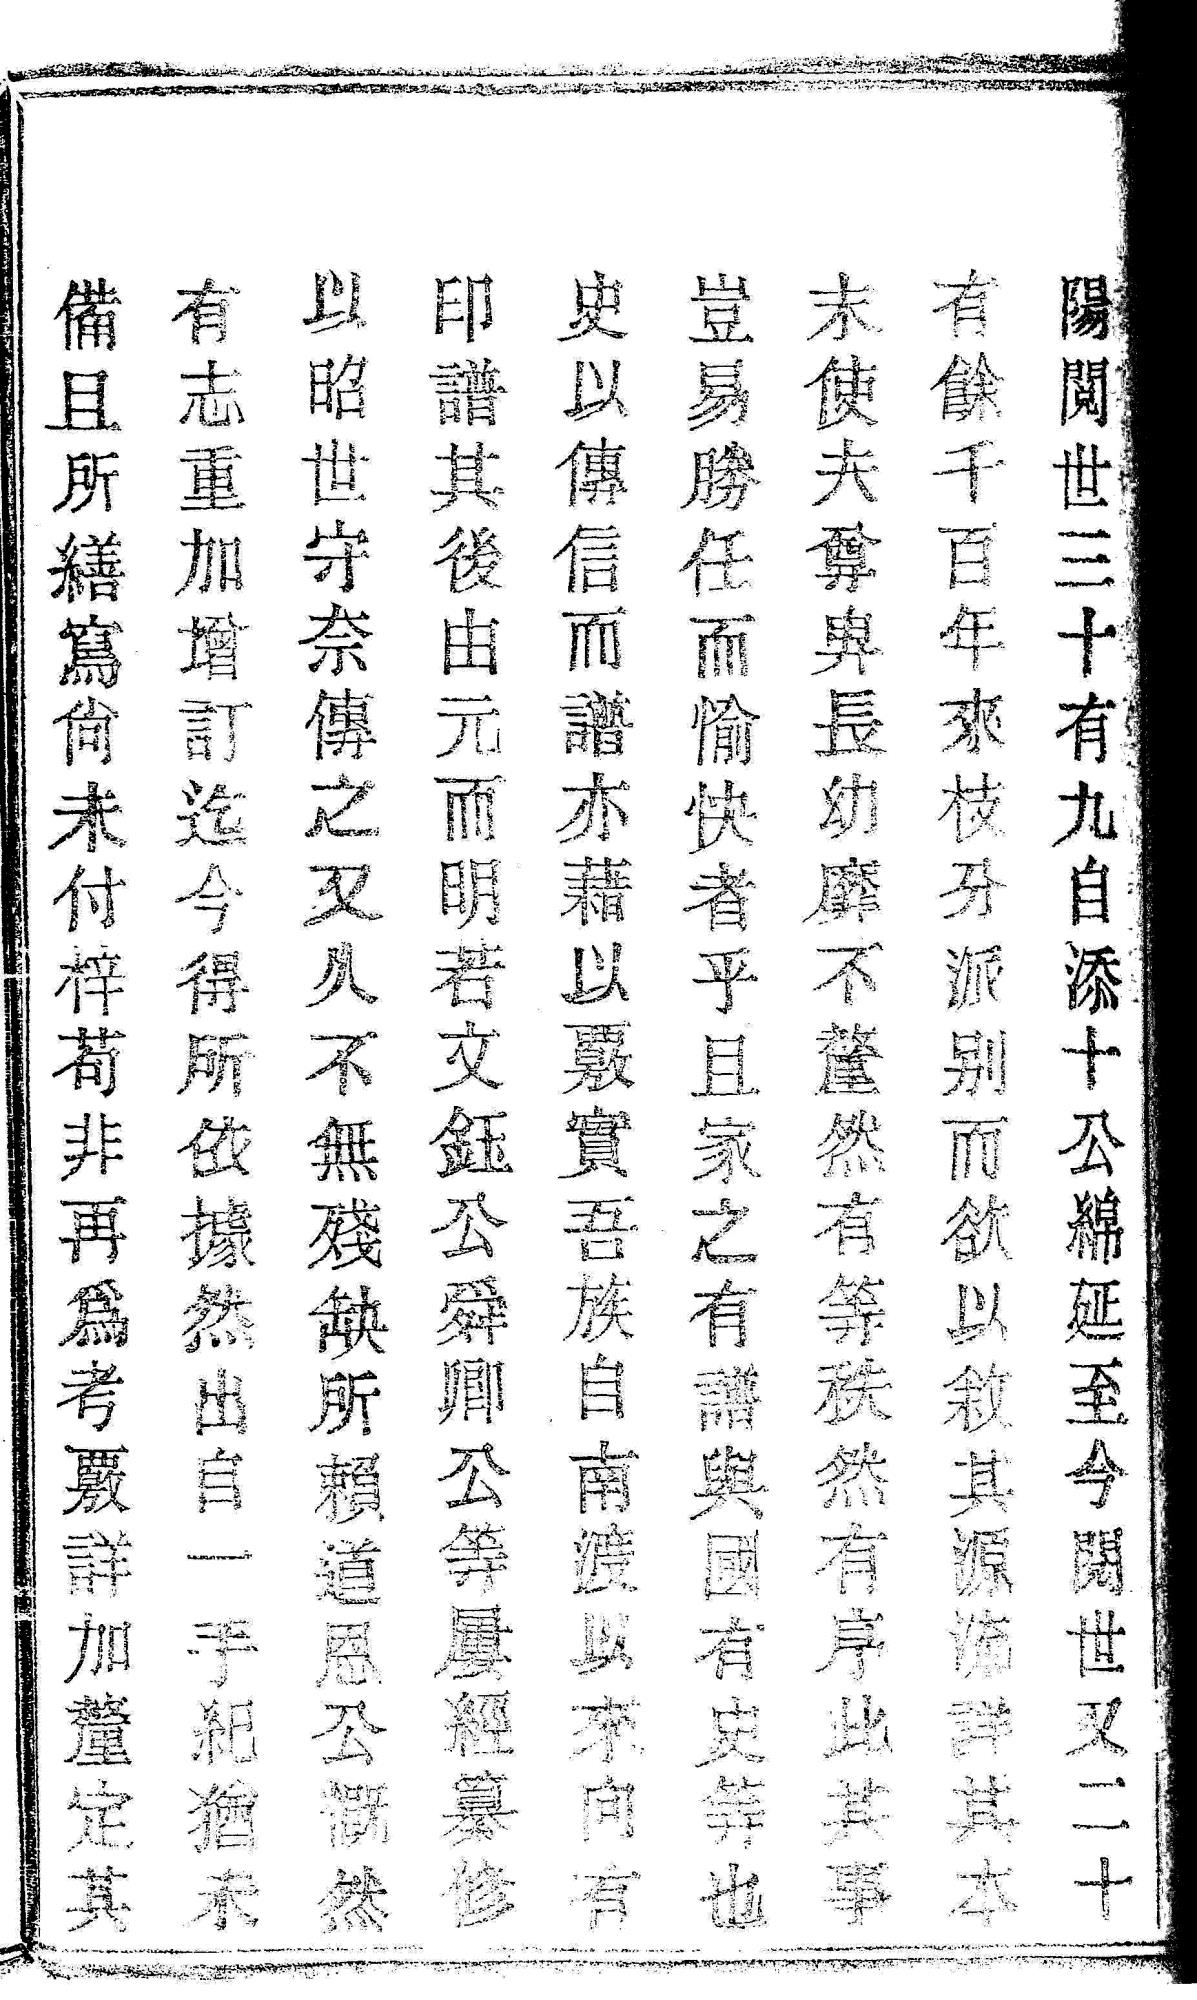 陽閱世三十有九自添十公綿延至今閱世又二十
有餘千百年來枝分派别而欲以敘其源流詳其本
末使夫尊卑長幼靡不釐然有等秩然有序此其事
豈易勝任而愉快者乎且家之有譜與國有史等也
史以傳信而譜亦藉以覈實吾族自南渡以來向有
印譜其後由元而明若文鈺公舜卿公等屢經纂修
以昭世守奈傳之又久不無殘缺所賴道恩公慨然
有志重加增訂迄今得所依據然出自一手紀猶未
備且所繕寫尙未付梓苟非再爲考覈詳加釐定其